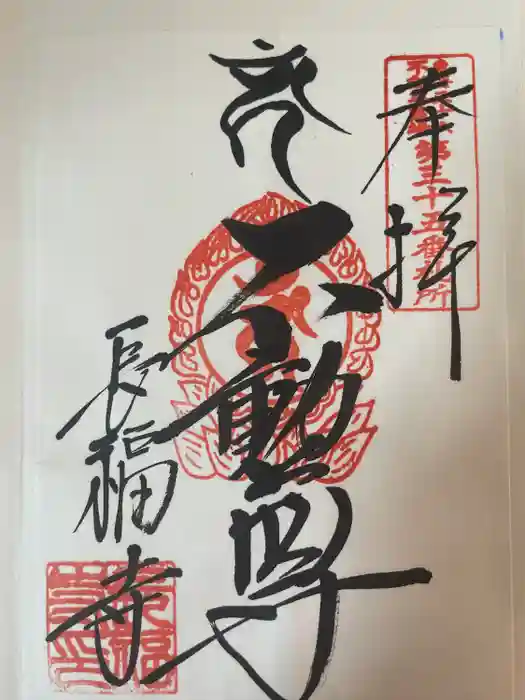 奉拝
第三十五番札所
不動尊
長福寺